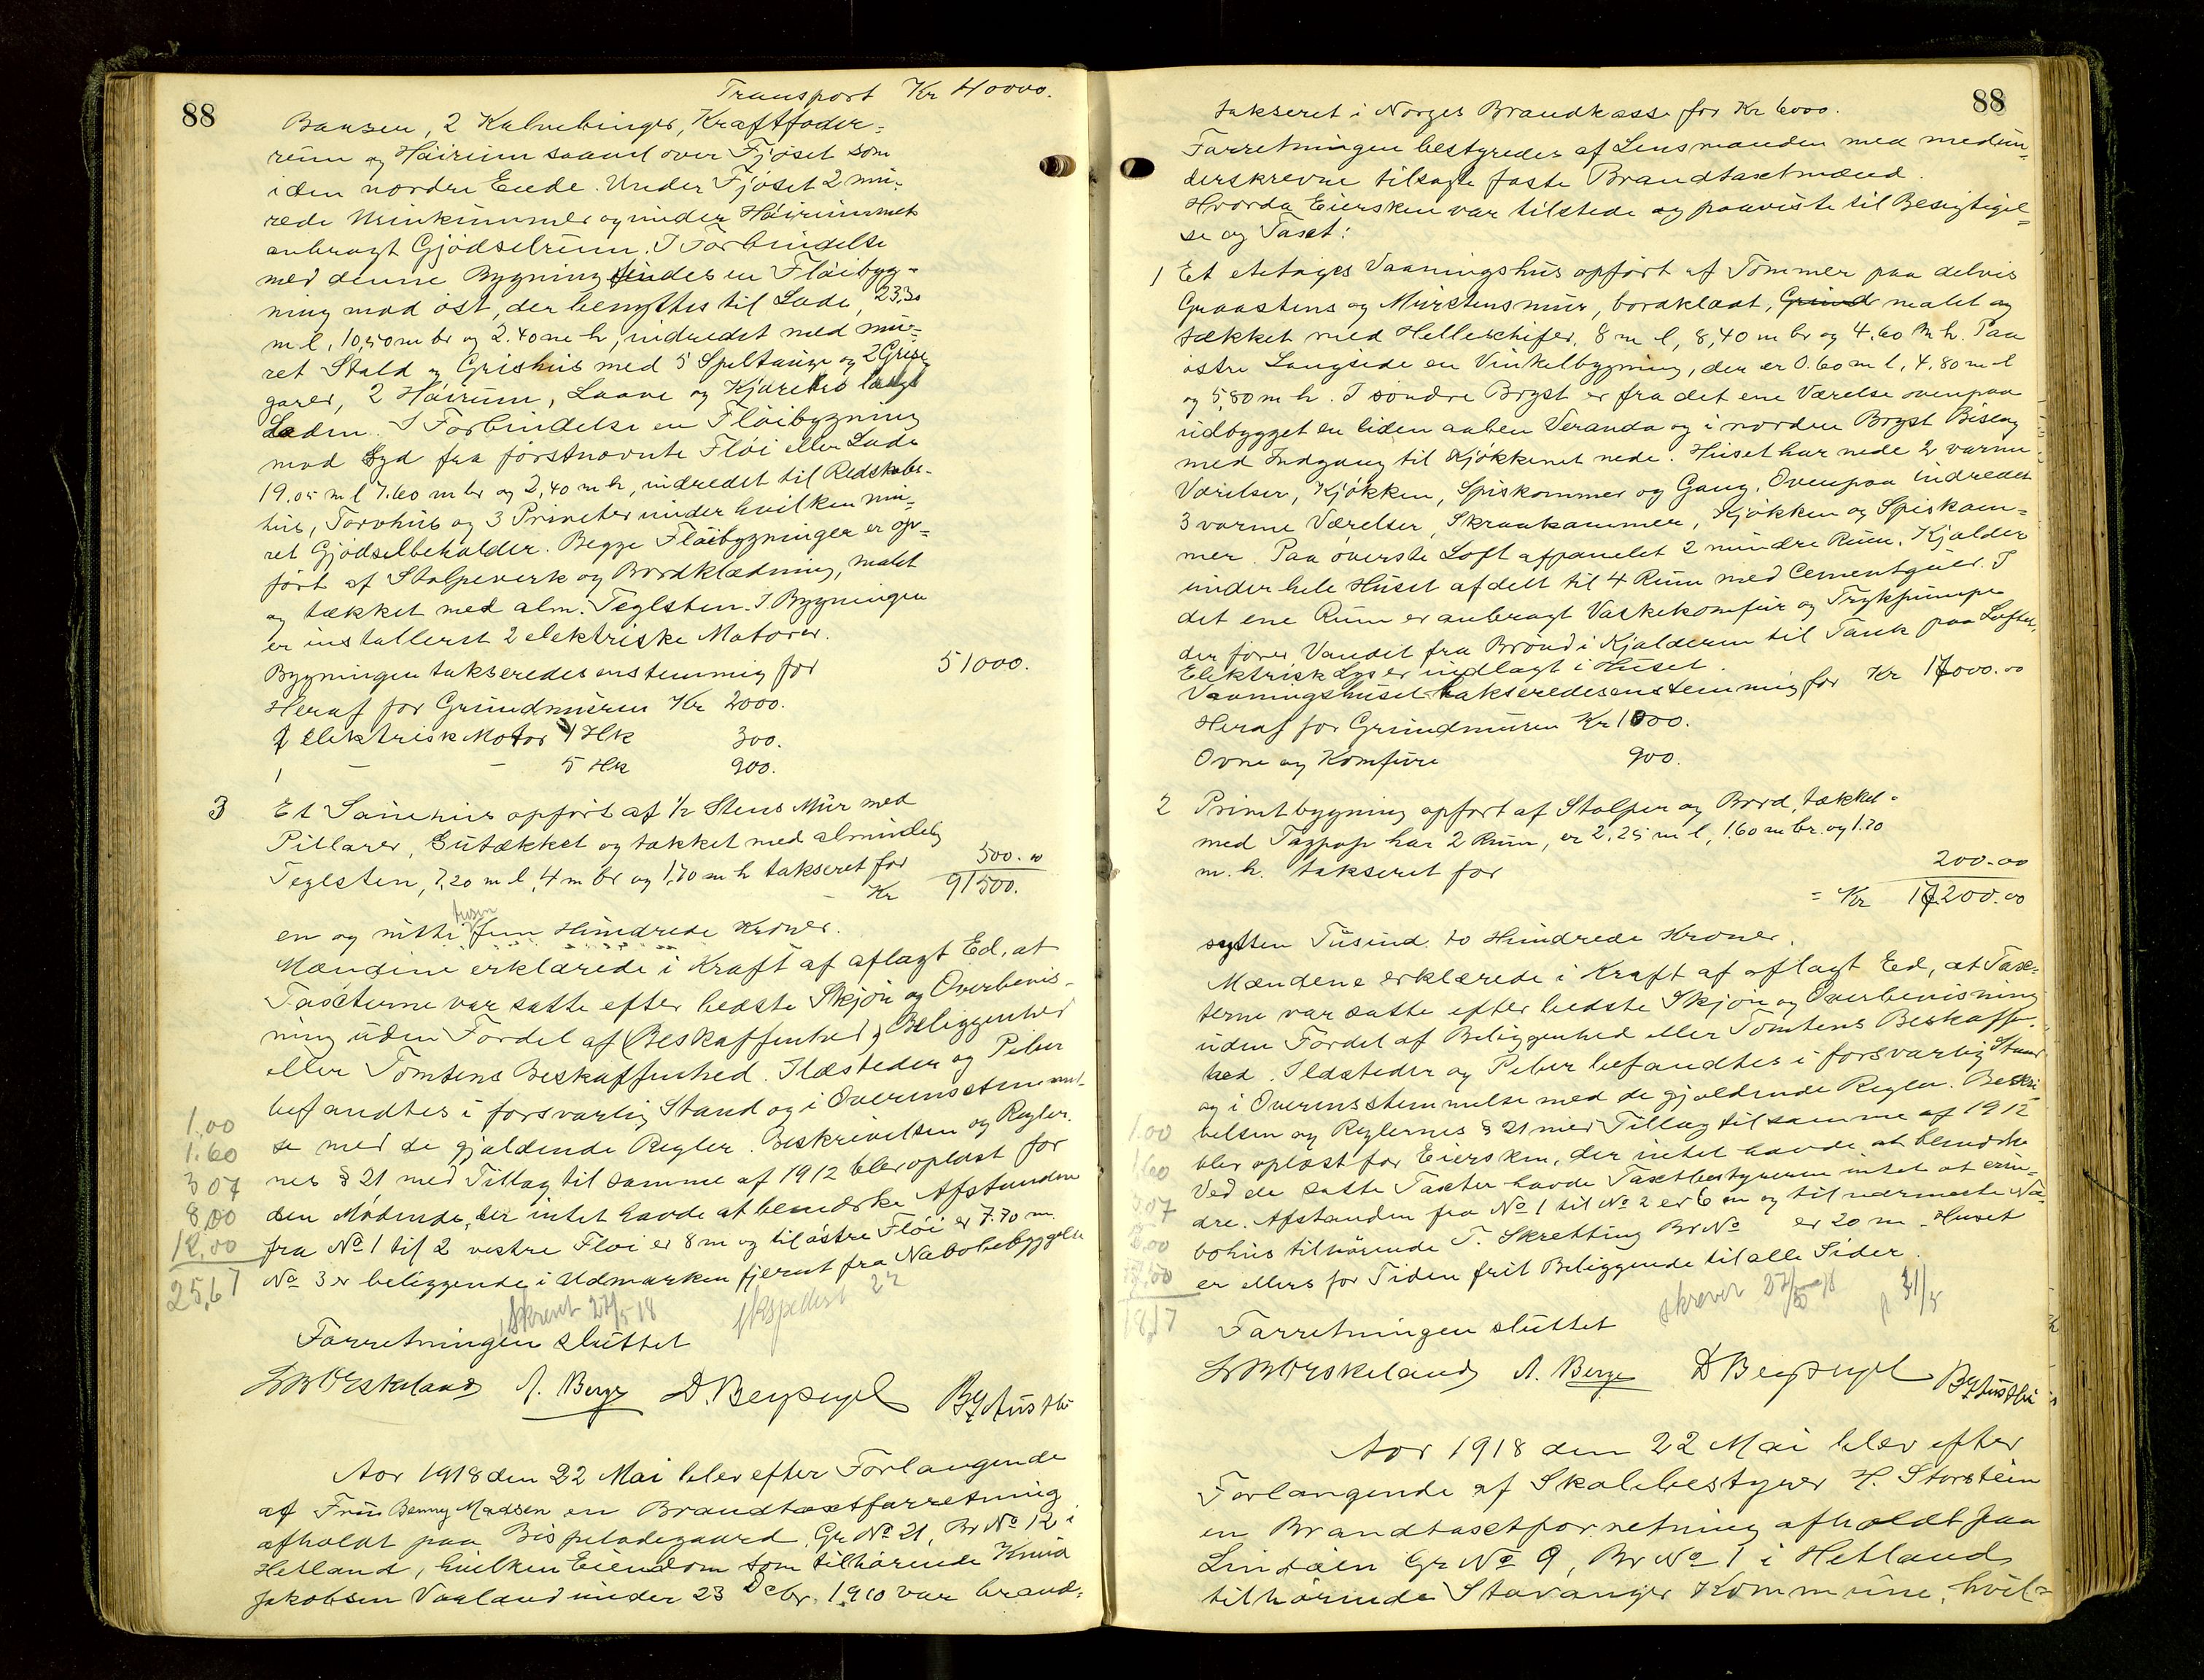 88
Transport Kr 40000.
Baasen, 2 Kalvebinger, Kraftfoder-
rum og Høirum saavel over Fjøset som
i den nordre Ende. Under Fjøset 2 mu-
rede Urinkummer og under Høirummet
anbragt Gjødselrum. I Forbindelse
med denne Bygning findes en Fløibyg-
ning mod øst, der benyttes til Lade, 23,30
m l, 10,50 m br og 2.40 m h, indredet med mu-
ret Stald og Grishus med 5 Spiltauge og 2 Grise
garer, 2 Høirum, Laave og Kjørebro langs
Laden. I Forbindelse en Fløibygning
mod Syd fra førstnævnte Fløi eller Lade
19.05 m l 7.60 m br og 2,40 m h, indredet til Redskabs-
hus, Torvhus og 3 Priveter under hvilken mu-
ret Gjødselbeholder. Begge Fløibygninger er op-
ført af Stolpeverk og Bordklædning, malet
og tækket med alm. Teglsten. I Bygningen
er installeret 2 elektriske Motorer.
Bygningen takseredes enstemmig for 51000.
Heraf for Grundmuren Kr 2000.
1 elektrisk Motor 1 Hk 300.
1 - - 5 Hk 900.
3 Et Sauehus opført af 1/2 Stens Mur med
Pillarer, Gutækket og tækket med almindelig
Teglsten, 7,20 m l, 4 m br og 1,70 m h takseret for 500.00
Kr 91500.
tusen
en og nitti fem Hundrede Kroner.
Mændene erklærede i Kraft af aflagt Ed, at
Taxterne var satte efter bedste Skjøn og Overbevis-
ning uden Fordel af Beskaffenhed, Beliggenhed
eller Tomtens Beskaffenhed. Ildsteder og Piber
befandtes i forsvarlig Stand og i Overensstemmel-
se med de gjældende Regler. Beskrivelsen og Regler-
nes § 21 med Tillæg til samme af 1912 blev oplæst for
den Mødende, der intet havde at bemærke. Afstanden
fra No 1 til 2 vestre Fløi er 8 m og til østre Fløi er 7.70 m.
No 3 er beliggende i Udmarken fjernt fra Nabobebyggelse
1.00
1.60
3 07
8,00
12,00
25,67
Skrevet 27/5 18 Ekspedert 22
Forretningen sluttet
A. Berge
Aar 1918 den 22 Mai blev efter Forlangende
af Fru Benny Madsen en Brandtaxtforretning
afholdt paa Bispeladegaard, Gr No 21, Br No 12 i
Hetland, hvilken Eiendom som tilhørende Knud
Jakobsen Vaaland under 23 Dcbr. 1910 var brand-
88
takseret i Norges Brandkasse for Kr 6000.
Forretningen bestyredes af Lensmanden med medun-
derskrevne tilsagte faste Brandtaxtmænd.
Hvorda Eiersken var tilstede og paaviste til Besigtigel-
se og Taxt:
1 Et etetages Vaaningshus opført af Tømmer paa delvis
Graastens og Murstensmur, bordklædt, Grund malet og
tækket med Helleschifer, 8 m l, 8,40 m br og 4.60 m h. Paa
østre Langside en Vinkelbygning, der er 0.60 m l, 4.80 m l
og 5,80 m h. I søndre Bryst er fra det ene Værelse ovenpaa
udbygget en liden aaben Veranda og i nordre Bryst Biseng
med Indgang til Kjøkkenet nede. Huset har nede 2 varme
Værelser, Kjøkken, Spiskammer og Gang. Ovenpaa indredet
3 varme Værelser, Skraakammer, Kjøkken og Spiskam-
mer. Paa øverste Loft afpanelet 2 mindre Rum. Kjælder
under hele Huset afdelt til 4 Rum med Cementgulv. I
det ene Rum er anbragt Vaskekomfur og Trykpumpe
der fører Vandet fra Brønd i Kjælderen til Tank paa Loftet.
Elektrisk Lys er indlagt i Huset.
Vaaningshuset takseredes enstemmig for Kr 17000.00
Heraf for Grundmuren Kr 1000.
Ovne og Komfure 900.
2 Privetbygning opført af Stolper og Bord, tækket
med Tagpap har 2 Rum, er 2,25 m l, 1,60 m br. og 1.70
m. h. takseret for 200.00
= Kr 17200.00
sytten Tusind to Hundrede Kroner.
Mændene erklærede i Kraft af aflagt Ed, at Tax-
terne var satte efter bedste Skjøn og Overbevisning
uden Fordel af Beliggenhed eller Tomtens Beskaffen-
hed. Ildsteder og Piber befandtes i forsvarlig Stand
og i Overensstemmelse med de gjældende Regler. Beskri-
velsen og Reglernes § 21 med Tillæg til samme af 1912
blev oplæst for Eiersken, der intet havde at bemærke
Ved de satte Taxter havde Taxtbestyreren intet at erin-
dre. Afstanden fra No 1 til No 2 er 6 m og til nærmeste Na-
bohus tilhørende T. Skretting Br No er 20 m. Huset
er ellers for Tiden frit Beliggende til alle Sider.
1.00
1.60
3,07
18,17
skrevet 27/5 18 31/5
Forretningen sluttet
A. Berge
Aar 1918 den 22 Mai blev efter
Forlangende af Skolebestyrer H. Storstein
en Brandtaxtforretning afholdt paa
Lindøen Gr No 9, Br No 1 i Hetland
tilhørende Stavanger Kommune, hvil-